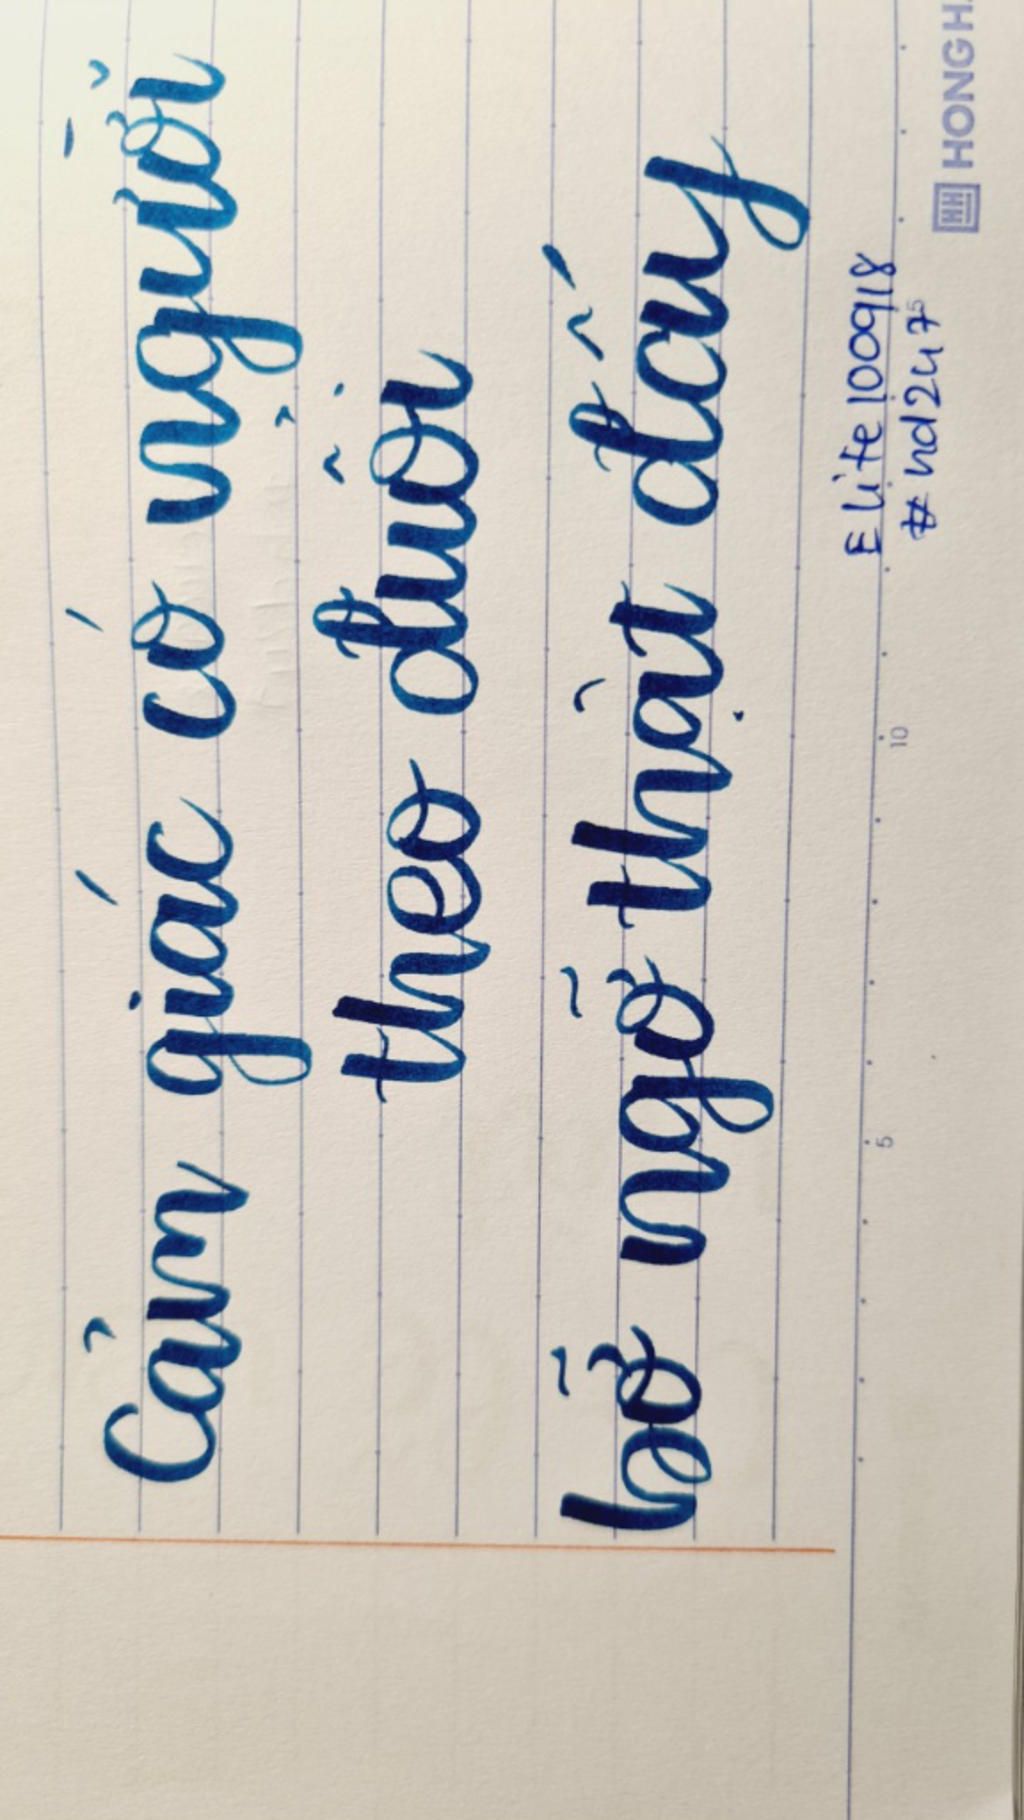 Cảm giác có người
theo đuôi
bỡ ngỡ thật đấy
Elife100918
#nd2427
5
10
15
HONG H